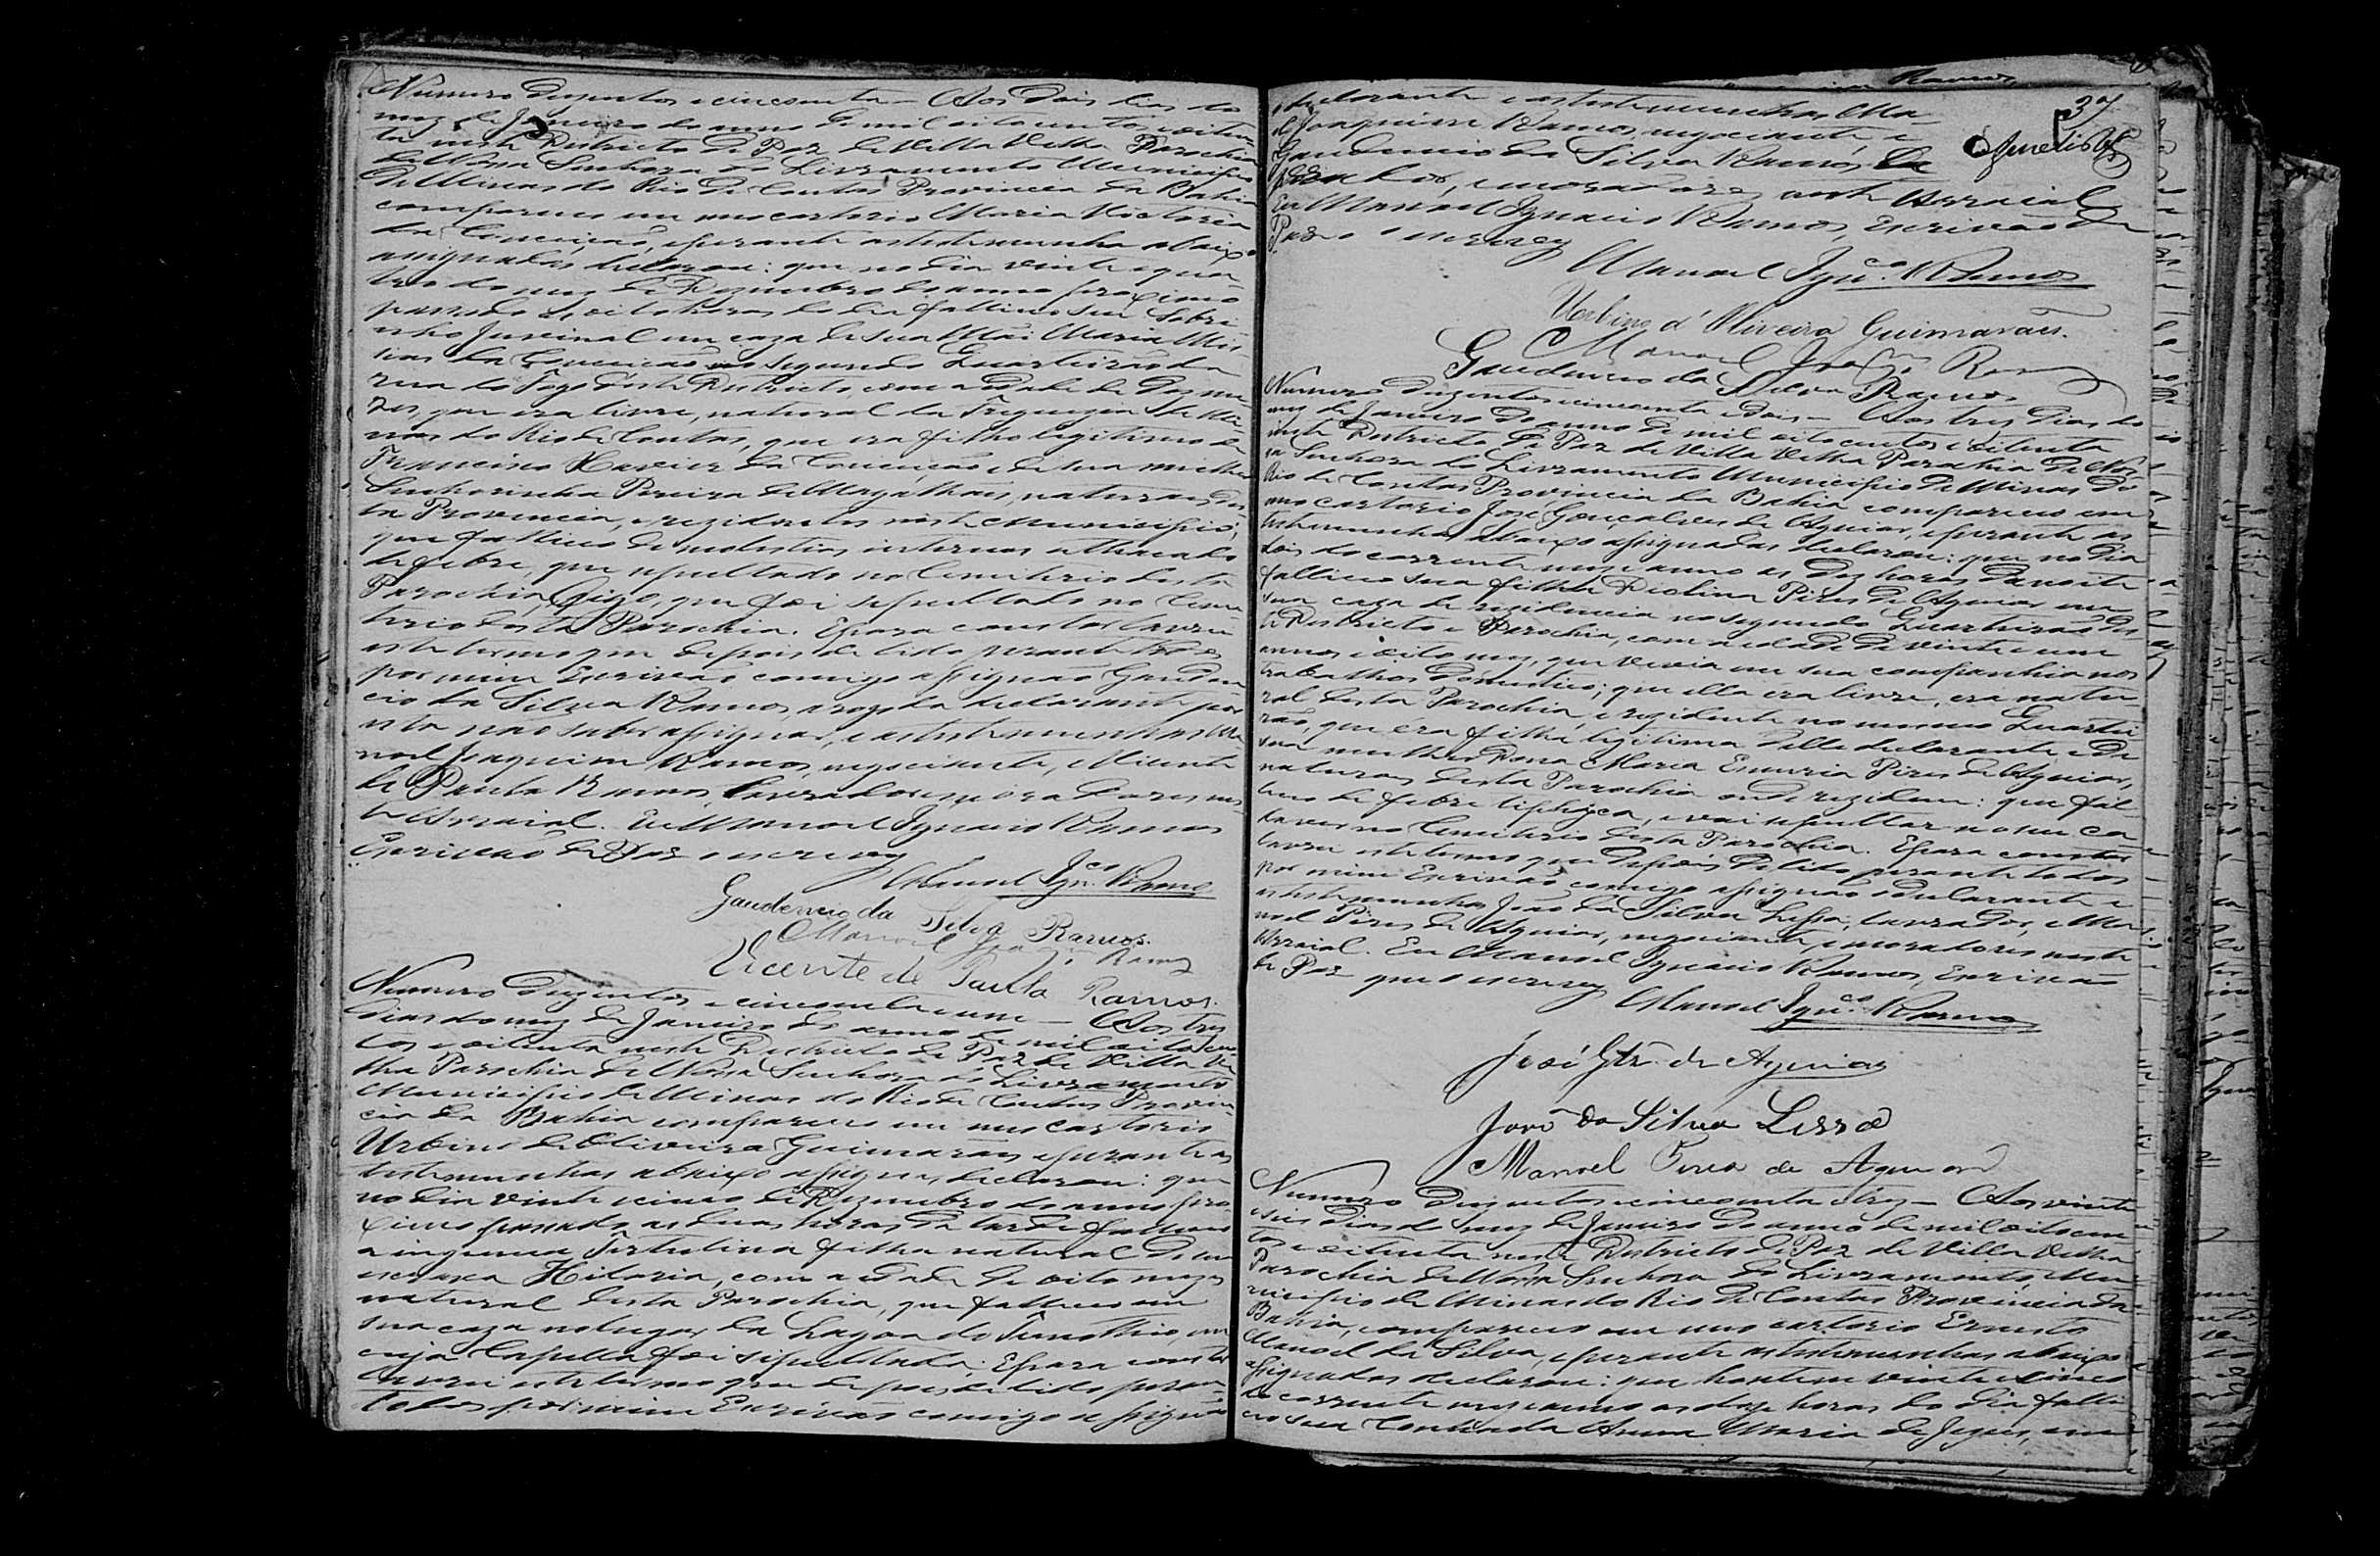 Numero duzentos e cincoenta — Aos dois dias do
mez de Janeiro do anno de mil oito centos e oiten-
ta neste Districto de Paz de Villa Velha Parochia
de Nossa Senhora do Livramento Municipio
de Minas do Rio de Contas Provincia da Bahia
compareceu em meo cartorio Maria Victoria
da Conceição, e perante as testemunhas abaixo
assignadas declarou: que no dia vinte e qua-
tro do mez de Dezembro do anno proximo
passado as oito horas do dia falleceo seu sobri-
nho Juvenal em caza de sua Mãi Maria
da Conceição no segundo Quarteirão da
rua do Fogo deste Districto, com a idade de dez me-
zes, que era livre, natural da Freguezia de Mi-
nas do Rio de Contas, que era filho legitimo de
Francisco Xavier da Conceição e de sua mulher
Senhorinha Pereira de Magalhães, naturaes des-
ta Provincia, e rezidentes neste Municipio;
que falleceo de molestias internas athacado
de febre, que sepultado no Cemiterio desta
Parochia, digo, que foi sepultado no Cemi-
terio desta Parochia. E para constar lavrei
este termo que depois de lido perante todos
por mim Escrivão comigo assignão Gauden-
cio da Silva Ramos, a rogo da declarante por
esta não saber assignar, e as testemunhas Ma-
noel Joaquim Ramos, negociante, e Vicente
de Paula Ramos, lavrador, e moradores nes-
te Arraial. Eu Manoel Ignacio Ramos
Escrivão de Paz o escrevy
Manoel Ign.co Ramos
Gaudencio da Silva Ramos.
Manoel Joa.m Ramos
Vicente de Paula Ramos.
Numero duzentos e cincoenta e um — Aos tres
dias do mez de Janeiro do anno de mil oito cen-
tos e oitenta neste Districto de Paz de Villa Ve-
lha Parochia de Nossa Senhora do Livramento
Municipio de Minas do Rio de Contas Provin-
cia da Bahia compareceu em meo cartorio
Urbino de Oliveira Guimarães e perante as
testemunhas abaixo assignadas, declarou: que
no dia vinte e cinco de Dezembro do anno pro-
ximo passado, as duas horas da tarde falleceo
a ingenua Tertulina filha natural de sua
escrava Hilaria, com a idade de oito mezes
natural desta Parochia, que falleceo em
sua caza no lugar da Lagoa do Timotheo, em
cuja Capella foi sepultada. E para constar
lavrei este termo que depois de lido peran-
todos por mim Escrivão comigo assignão
37
o declarante e as testemunhas Ma-
el Joaquim Ramos, negociante, e
Gaudencio da Silva Ramos, La
vrador, e moradores neste Arraial
Eu Manoel Ignacio Ramos, Escrivão de
Paz o escrevy
Manoel Ign.co Ramos
Urbino d'Oliveira Guimarães.
Manoel Joa.m Ramos
Gaudencio da Silva Ramos
Numero duzentos cincoenta e dois — Aos tres dias do
mez de Janeiro do anno de mil oito centos e oitenta
neste Districto de Paz de Villa Velha Parochia de Nos-
sa Senhora do Livramento Municipio de Minas do
Rio de Contas Provincia da Bahia compareceo em
meo cartorio José Gonçalves de Aguiar, e perante as
testemunhas abaixo assignadas declarou: que no dia
dois do corrente mez e anno as dez horas da noite
falleceo sua filha Pires de Aguiar em
sua caza de rezidencia no segundo Quarteirão des-
te Districto e Parochia, com a idade de vinte e um
annos e oito mez, que vivia em sua companhia nos
trabalhos domesticos; que ella era livre, era natu-
ral desta Parochia, e rezidente no mesmo Quartei-
rão, que éra filha legitima delle declarante e de
sua mulher Dona Maria Pires de Aguiar,
naturaes desta Parochia onde rezidem: que fal-
leceo de febre, e vai sepultar-se o seu ca-
daver no Cemiterio desta Parochia. E para constar
lavrei este termo que depois de lido perante todos
por mim Escrivão comigo assignão o declarante e
as testemunhas João da Silva Lessa, lavrador, e Ma-
noel Pires de Aguiar, negociante, e moradores neste
Arraial. Eu Manoel Ignacio Ramos, Escrivão
de Paz que o escrevy
Manoel Ign.co Ramos
José Glz. de Aguiar
João da Silva Lessa
Manoel Pires de Aguiar
Numero duzentos e cincoenta e trez — Aos vinte
e seis dias do mez de Janeiro do anno de mil oito cen-
tos e oitenta neste Districto de Paz de Villa Velha
Parochia de Nossa Senhora do Livramento, Mu-
nicipio de Minas do Rio de Contas Provincia da
Bahia, compareceo em meo cartorio Ernesto
Manoel da Silva, e perante as testemunhas abaixo
assignadas declarou: que hontem vinte e cinco
do corrente mez e anno as doze horas do dia falle-
ceo sua cunhada Anna Maria de Jesus, em